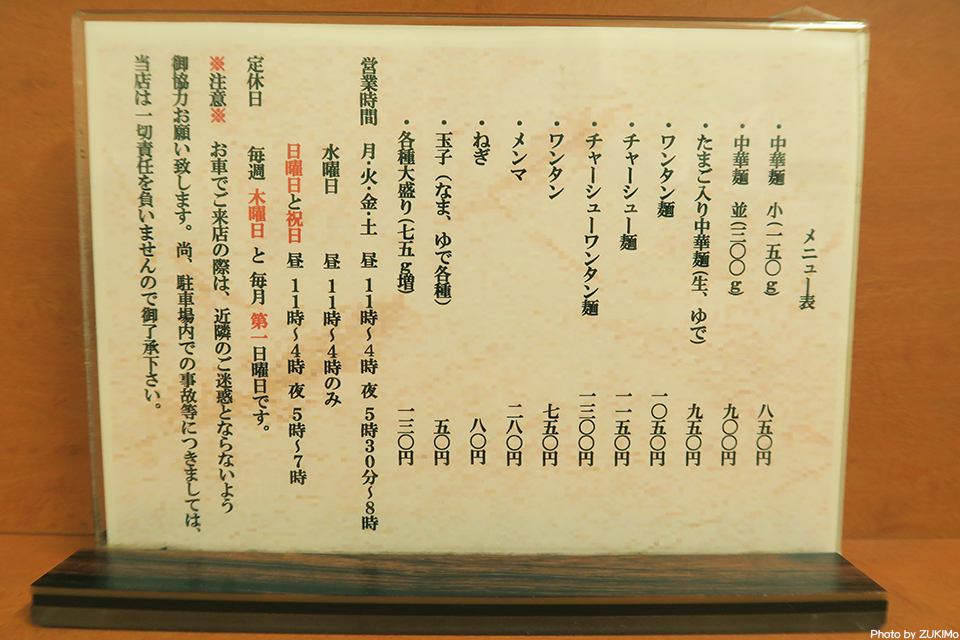 メニュー表
・中華麺　小(一五〇g)　八五〇円
・中華麺　並(二〇〇g)　九〇〇円
・たまご入り中華麺(生、ゆで)　九五〇円
・ワンタン麺　一〇五〇円
・チャーシュー麺　一一五〇円
・チャーシューワンタン麺　一三〇〇円
・ワンタン　七五〇円
・メンマ　二八〇円
・ねぎ　八〇円
・玉子（なま、ゆで各種）　五〇円
・各種大盛り(七五g増)　一三〇円
営業時間　月・火・金・土　昼　11時〜4時　夜　5時30分〜8時
水曜日　昼　11時〜4時のみ
日曜日と祝日　昼　11時〜4時　夜　5時〜7時
定休日　毎週　木曜日　と　毎月　第一日曜日です。
※注意※　お車でご来店の際は、近隣のご迷惑とならないよう
御協力お願い致します。尚、駐車場内での事故等につきましては、
当店は一切責任を負いませんので御了承下さい。
Photo by ZUKIMo